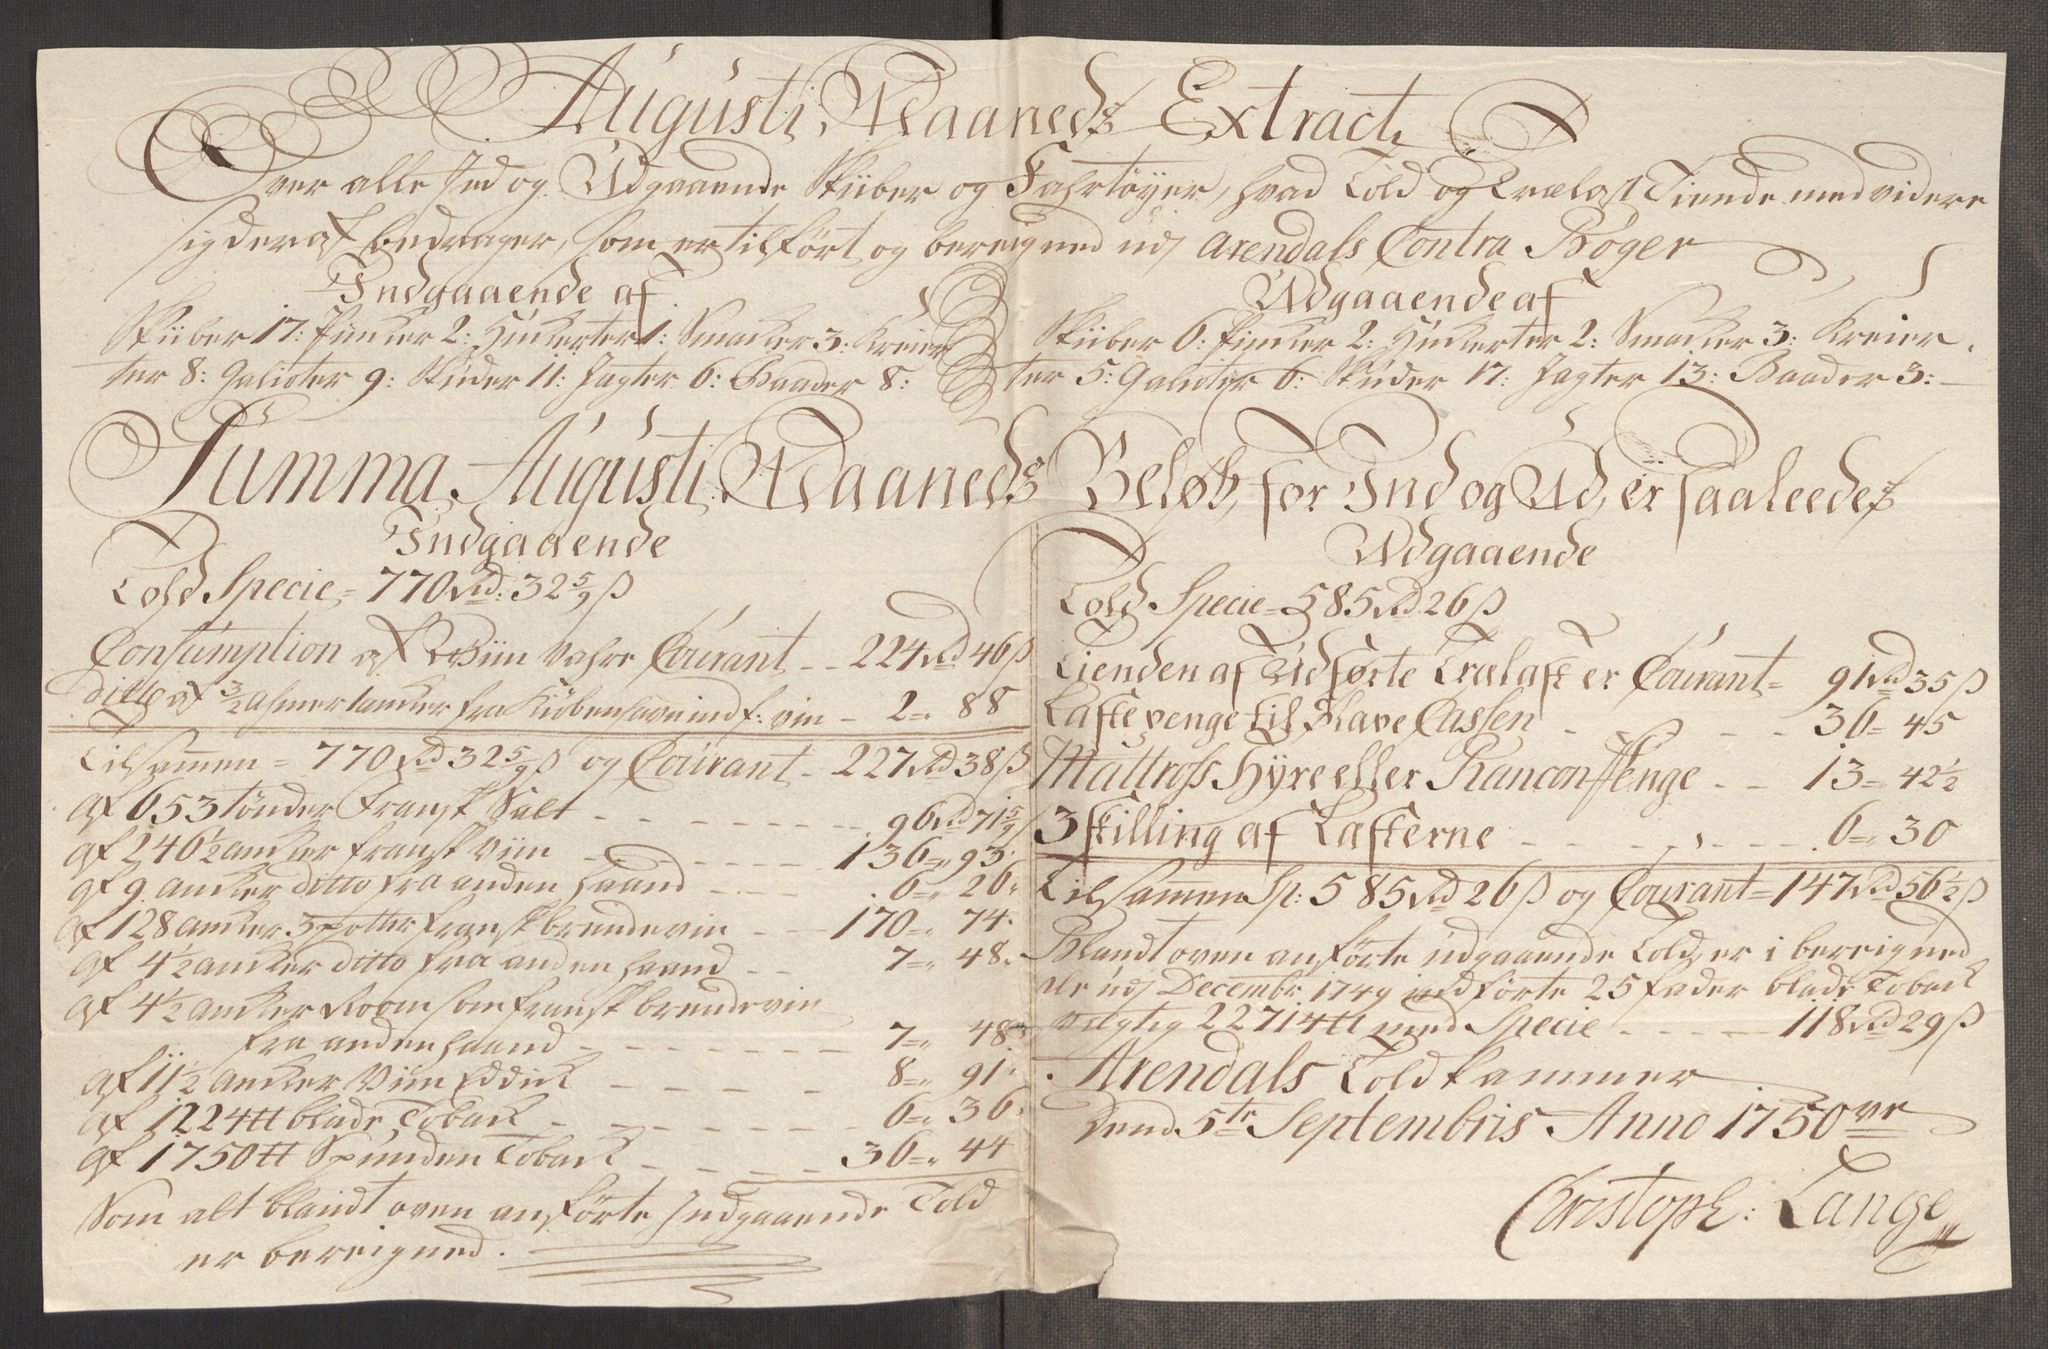 Augusti Maaneds Extract
Over alle Ind og Udgaaende Skiiber og Fahrtøyer, hvad Told og Trælast Tiende med videre
sig deraf bedrager, som er tilført og bereigned udj Arendals Contra Bøger
Indgaaende af
Skiiber 17: Pincker 2: Huckerter 1: Smacker 3: Kreier
ter 8: Galioter 9: Skuder 11: Jagter 6: Baader 8:
Udgaaende af
Skiiber 6: Pincker 2: Huckerter 2: Smacker 3: Kreier
ter 5: Galioter 6: Skuder 17: Jagter 13: Baader 3:
Summa Augusti Maaneds Beløb, for Ind og Ud, er saaleedes
Indgaaende
Told Specie = 770 Rd: 32 5/9 ß
Consumption af Viin Vahre Courant - - 224 Rd 46 ß
Ditto af 3/2 fra Kiøbenhavn indf: viin - 2 = 88
Tilsammen = 770 Rd 32 5/9 ß og Courant - 227 Rd 38 ß
af 653 tønder Fransk Salt - - - 96 Rd 71 5/9 ß
af 246½ ancker fransk Viin - - - 136 = 93
af 9 ancker ditto fra anden haand - - - 6 = 26
af 128 ancker 3 potter fransk brendeviin - - 170 = 74
af 4½ ancker ditto fra anden haand - - 7 = 48
af 4½ ancker Room som fransk brendeviin
fra anden haand - - - 7 = 48
af 11½ ancker Viin Eddick - - - 8 = 91
af 1224 tt blade Toback - - - 6 = 36
af 1750 tt Spunden Toback - - - 36 = 44
Som alt blandt oven anførte Indgaaende Told
er bereigned.
Udgaaende
Told Specie = 585 Rd 26 ß
Tienden af Udførte Trælast er Courant = 91 Rd 35 ß
Lastepenge til Slave Cassen - - - 36 = 45
Mattross Hyre eller Rancon Penge - - 13 = 42½
3 skilling af Lasterne - - - 6 = 30
Tilsamen Sp: 585 Rd 26 ß og Courant = 147 Rd 56½ ß
Blandt oven anførte udgaaende Told, er i bereigned
de udj Decembr: 1749 indførte 25 fader blade Toback
vegtig 22714 tt med Specie - - - 118 Rd 29 ß
Arendals Toldkammer
Dend 5te Septembris Anno 1750
Christoph: Lange